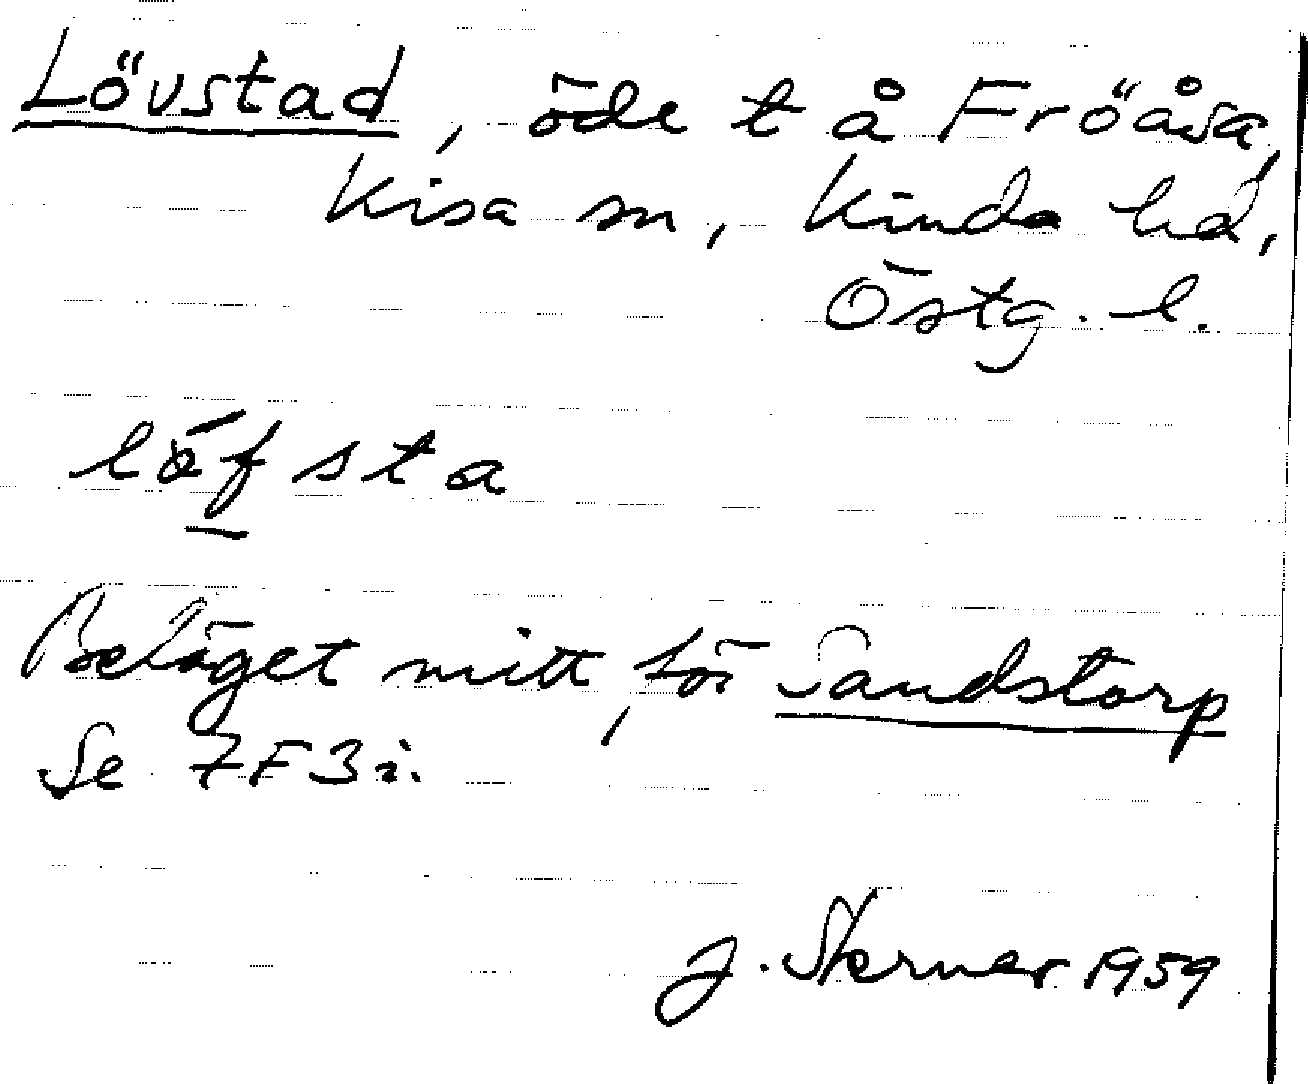 Lövstad, öde t å Fröåsa,
Kisa sn, Kinda hd,
Östg. l.
löfsta
Beläget mitt för Sandstorp
Se 7F3i.
J. Sterner 1959